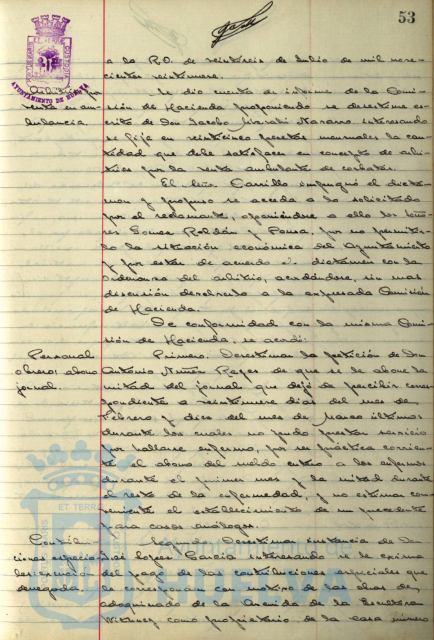 53
PORTUS MARIS ET TERRAE CUSTODIA
AYUNTAMIENTO DE HUELVA
a la R.O. de veintiseis de Julio de mil nove-
cientos veintinueve.
Arbitrio por
venta en am-
bulancia.
Se dió cuenta de informe de la Comi-
sión de Hacienda proponiendo se desestime es-
crito de Don Jacobo Navarro interesando
se fije en veinticinco pesetas mensuales la can-
tidad que debe satisfacer en concepto de arbi-
trios por la venta ambulante de corbatas.
El Señor Carrillo impugnó el dicta-
men y propuso se acceda a lo solicitado
por el reclamante, oponiéndose a ello los Seño-
res Gomez Roldán y Ponsa, por no permitir-
lo la situación económica del Ayuntamiento
y por estar de acuerdo el dictamen con la
Ordenanza del arbitrio, acordándose, sin mas
discusión devolverlo a la expresada Comisión
de Hacienda.
De conformidad con la misma Comi-
sión de Hacienda, se acordó:
Personal
obrero: abono
jornal.
Primero. Desestimar la petición de Don
Antonio Núñez Reyes de que se le abone la
mitad del jornal que dejó de percibir corres-
pondiente a veintinueve dias del mes de
Febrero y diez del mes de Marzo últimos
durante los cuales no pudo prestar servicio
por hallarse enfermo, por ser práctica corrien-
te el abono del sueldo entero a los enfermos
durante el primer mes y la mitad durante
el resto de la enfermedad, y no estimar con-
veniente el establecimiento de un precedente
para casos análogos.
Contribu-
ciones especia-
les: exención
denegada.
Segundo. Desestimar instancia de Jo-
sé Lopez Garcia interesando se le exima
del pago de las contribuciones especiales que
le correspondan con motivo de las obras de
adoquinado de la Avenida de la Escultora
Whitney como propietario de la casa número
ET TERRAE
HUELVA